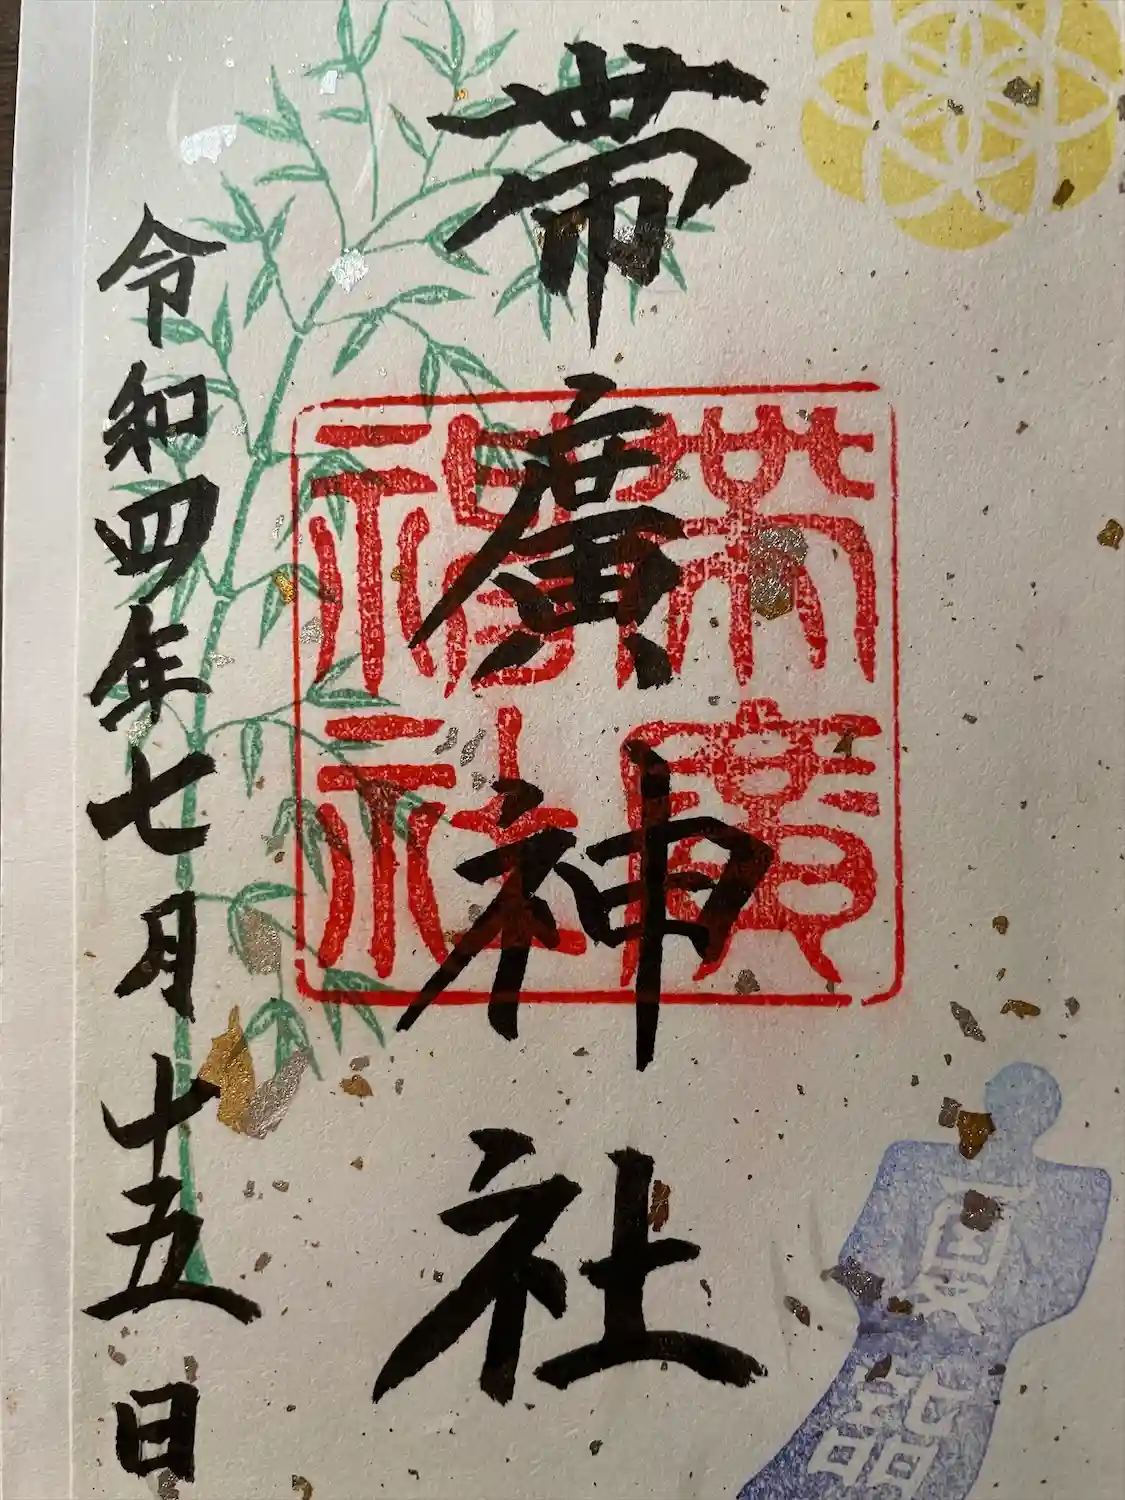 帯廣神社
帯廣
神社
夏詣
令和四年七月十五日